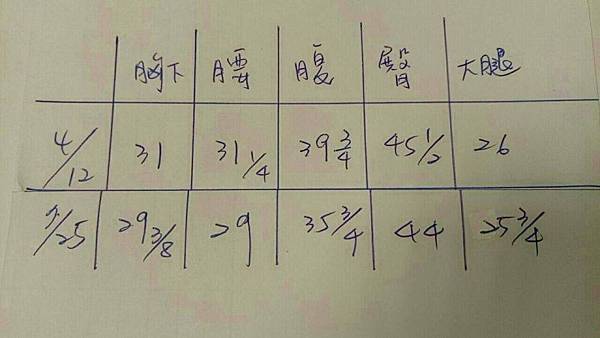 胸下 腰 腹 臀 大腿
4/12 31 31 1/4 39 3/4 45 1/2 26
/25 29 3/8 29 35 3/4 44 25 3/4